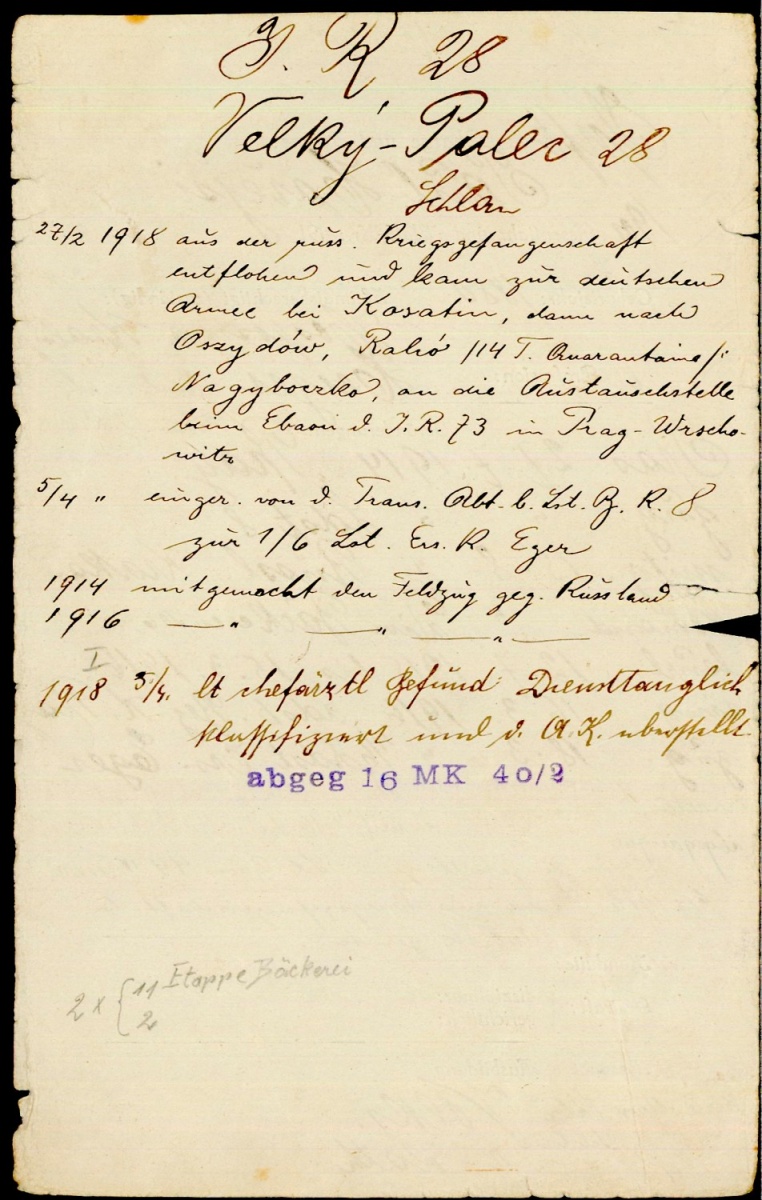 J. R 28
Velký-Palec 28
Schlan
27/2 1918 aus der russ. Kriegsgefangenschaft
entflohen und kam zur deutschen
Armee bei Kosatin, dann nach
Oszydów, Rahó /14 T. Quarantaine/:
Nagyboczko, an die Austauschstelle
beim Ebaon d. I. R. 73 in Prag-Wrscho-
witz
5/4 " einger. von d. Trans. Abt. b. Lst. B. K. 8
zur 1/6 Lst. Ers. K. Eger
1914 mitgemacht den Feldzug geg. Russland
1916 — " — " — " —
I
1918 5/4. lt chefärztl Befund: Diensttauglich
klassifiziert und d. A. K. überstellt.
abgeg 16 MK 40/2
2 x { 11 Etappe Bäckerei
2